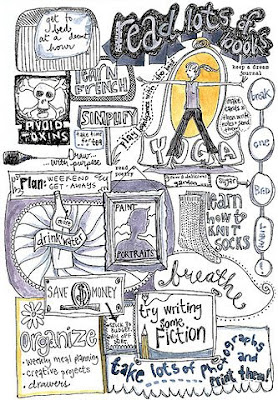 get to
bed
at a decent
hour
read lots of
books
keep a dream
journal
learn
french
AVOID
TOXINS
SIMPLIFY
take time
for tea
play
YOGA
make cards &
then write notes &
send them!
break
one
Bad
Draw...
...with purpose
Plan: WEEKEND
GET-AWAYS
read
poetry
garden
sugar
learn
how to
KNIT
SOCKS
more
drink water
PAINT
PORTRAITS
breathe
SAVE MONEY
try writing
some
FICTION
STICK TO
organize
• weekly meal planning
• creative projects
• drawers
take lots of photographs
and
print them!